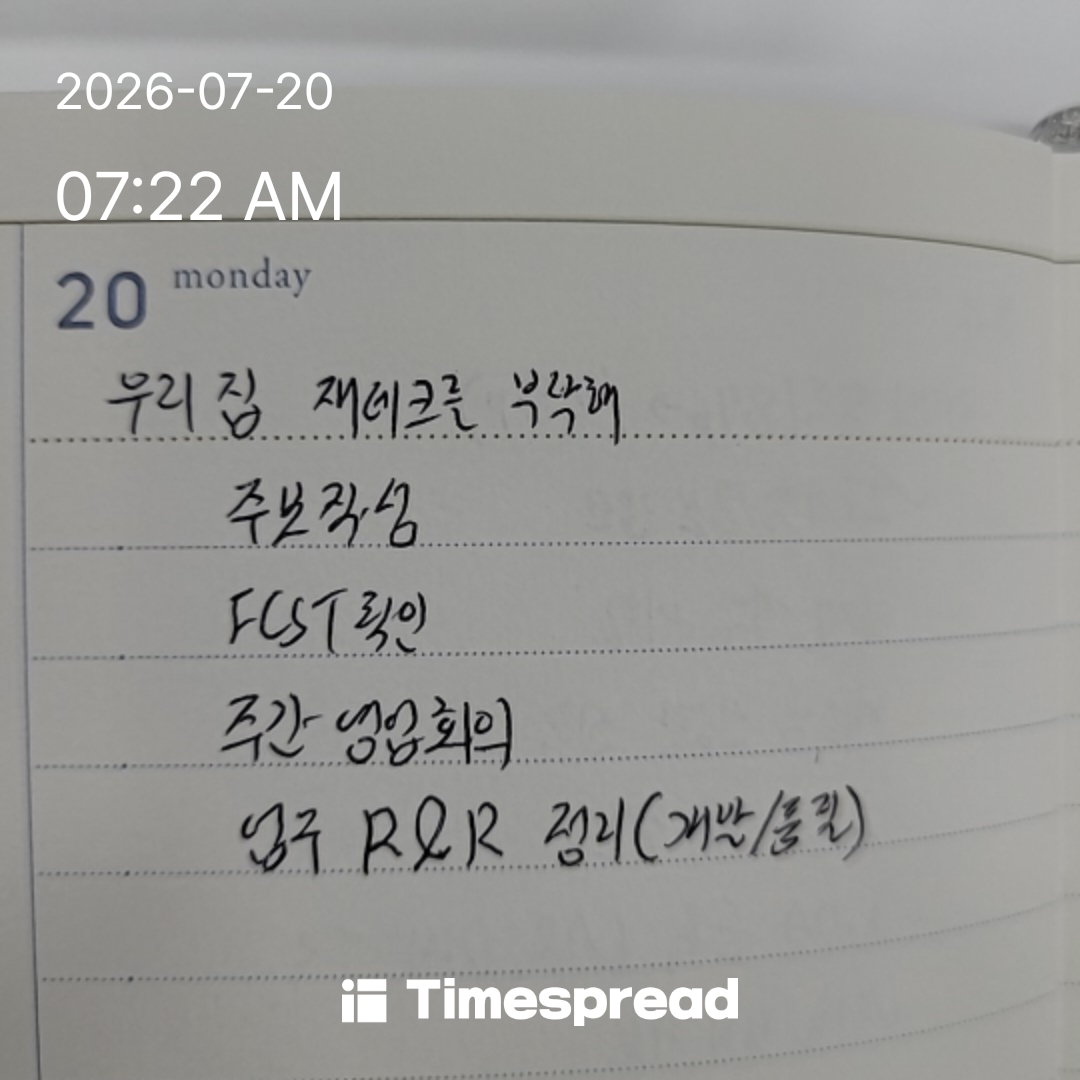 2026-07-20
07:22 AM
20 monday
우리 집 재테크를 부탁해
주보작성
FCST확인
주간 영업회의
업무 R&R 정리(개발/품질)
Timespread